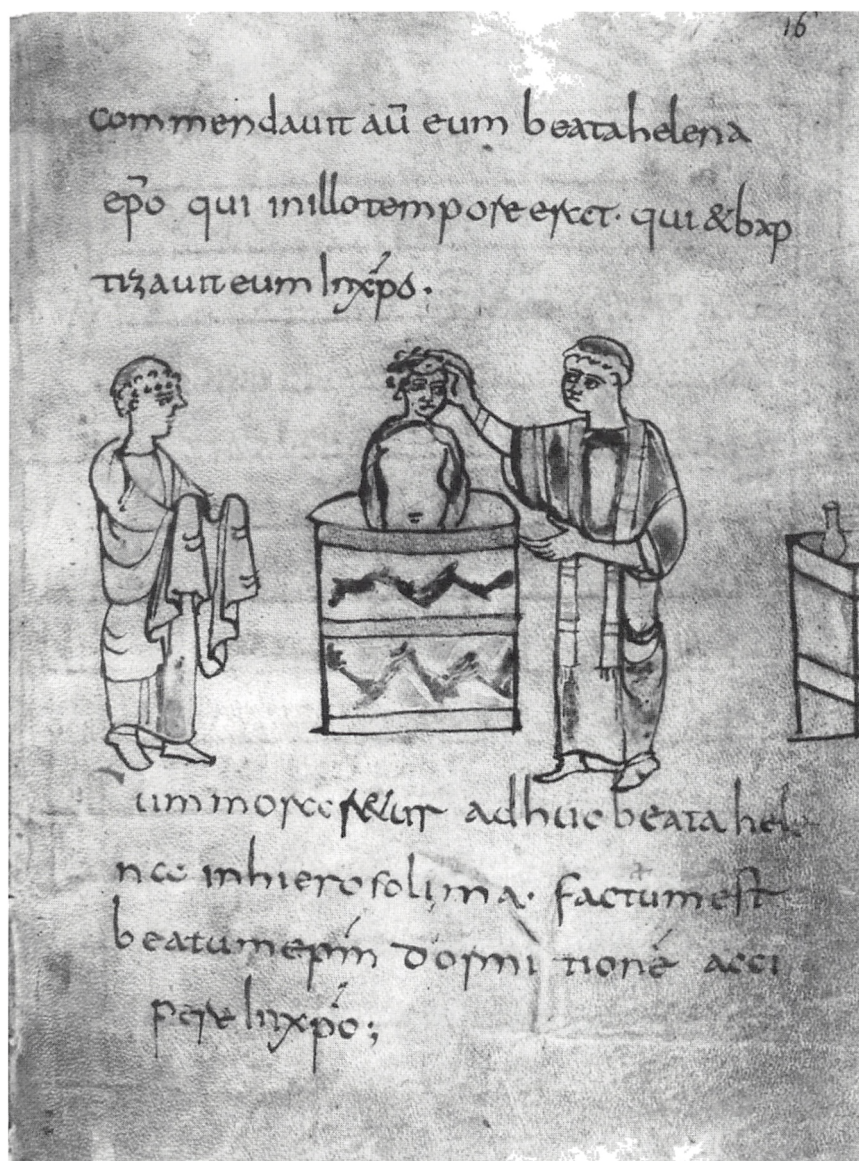 16
commendauit aū eum beata helena
ep̄o qui in illo tempore erat· qui & bap
tizauit eum In xp̄o·
um morar&ur adhuc beata hele
na in hierosolima· factum est
beatum ep̄m dormitionē acci
pere In xp̄o;